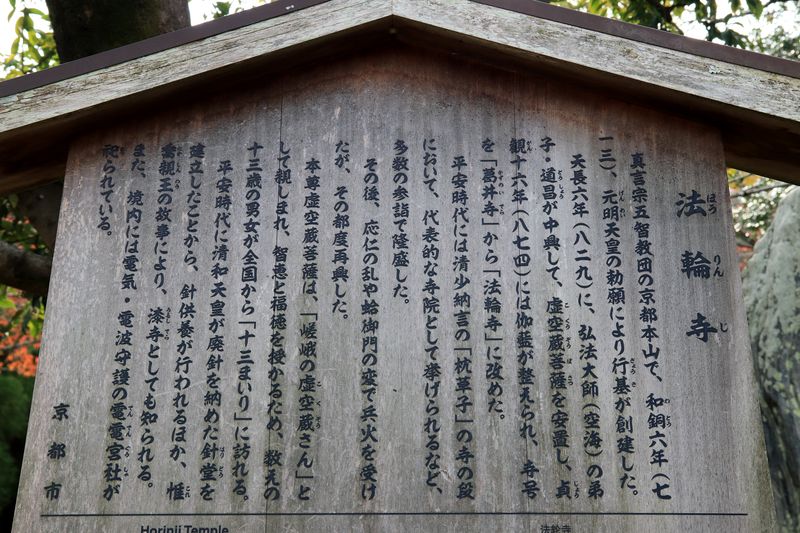 法輪寺
真言宗五智教団の京都本山で、和銅六年（七
一三）、元明天皇の勅願により行基が創建した。
天長六年（八二九）に、弘法大師（空海）の弟
子・道昌が中興して、虚空蔵菩薩を安置し、貞
観十六年（八七四）には伽藍が整えられ、寺号
を「葛井寺」から「法輪寺」に改めた。
平安時代には清少納言の「枕草子」の寺の段
において、代表的な寺院として挙げられるなど、
多数の参詣で隆盛した。
その後、応仁の乱や蛤御門の変で兵火を受け
たが、その都度再興した。
本尊虚空蔵菩薩は、「嵯峨の虚空蔵さん」と
して親しまれ、智恵と福徳を授かるため、数えの
十三歳の男女が全国から「十三まいり」に訪れる。
平安時代に清和天皇が廃針を納めた針堂を
建立したことから、針供養が行われるほか、惟
喬親王の故事により、漆寺としても知られる。
また、境内には電気・電波守護の電電宮社が
祀られている。
京都市
Horinji Temple
法輪寺